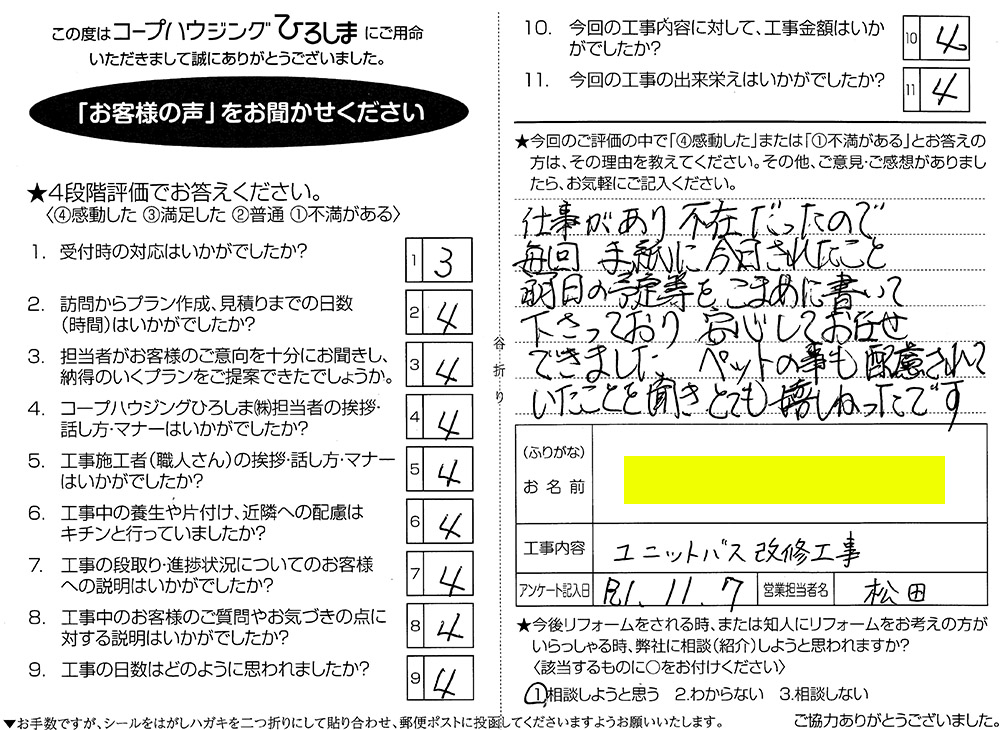 この度はコープハウジングひろしまにご用命
いただきまして誠にありがとうございました。
「お客様の声」をお聞かせください
★4段階評価でお答えください。
〈④感動した ③満足した ②普通 ①不満がある〉
1. 受付時の対応はいかがでしたか?
1 3
2. 訪問からプラン作成、見積りまでの日数
(時間)はいかがでしたか?
2 4
3. 担当者がお客様のご意向を十分にお聞きし、
納得のいくプランをご提案できたでしょうか。
3 4
4. コープハウジングひろしま㈱担当者の挨拶・
話し方・マナーはいかがでしたか?
4 4
5. 工事施工者(職人さん)の挨拶・話し方・マナー
はいかがでしたか?
5 4
6. 工事中の養生や片付け、近隣への配慮は
キチンと行っていましたか?
6 4
7. 工事の段取り・進捗状況についてのお客様
への説明はいかがでしたか?
7 4
8. 工事中のお客様のご質問やお気づきの点に
対する説明はいかがでしたか?
8 4
9. 工事の日数はどのように思われましたか?
9 4
谷折り
10. 今回の工事内容に対して、工事金額はいか
がでしたか?
10 4
11. 今回の工事の出来栄えはいかがでしたか?
11 4
★今回のご評価の中で「④感動した」または「①不満がある」とお答えの
方は、その理由を教えてください。その他、ご意見・ご感想がありまし
たら、お気軽にご記入ください。
仕事があり 不在だったので
毎回 手紙に今日されたこと
明日の予定等をこまめに書いて
下さっており 安心してお任せ
できました。ペットの事も配慮されて
いたことを聞きとても嬉しかったです
(ふりがな)
お名前
工事内容 ユニットバス改修工事
アンケート記入日 R1.11.7 営業担当者名 松田
★今後リフォームをされる時、または知人にリフォームをお考えの方が
いらっしゃる時、弊社に相談(紹介)しようと思われますか?
〈該当するものに○をお付けください〉
1.相談しようと思う 2.わからない 3.相談しない
▼お手数ですが、シールをはがしハガキを二つ折りにして貼り合わせ、郵便ポストに投函してくださいますようお願いいたします。
ご協力ありがとうございました。